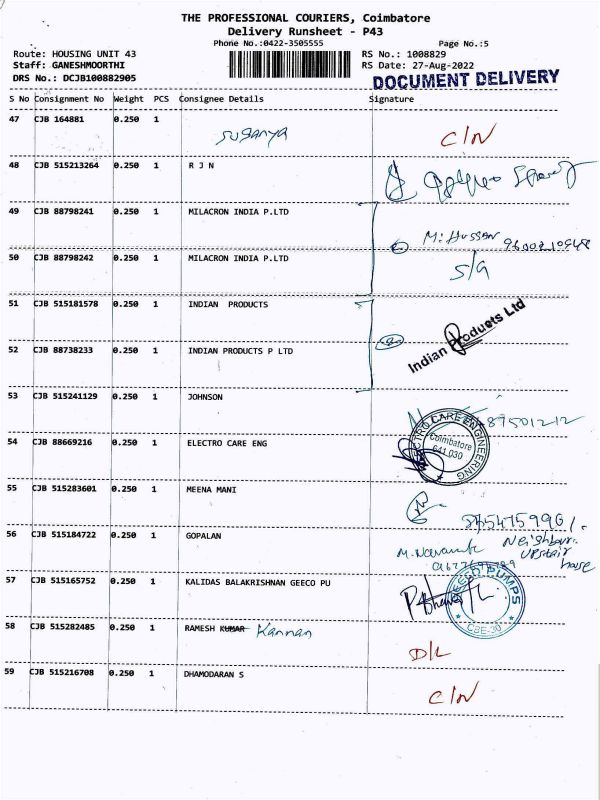 THE PROFESSIONAL COURIERS, Coimbatore
Delivery Runsheet - P43
Phone No.:0422-3505555
Page No.:5
Route: HOUSING UNIT 43
RS No.: 1008829
Staff: GANESHMOORTHI
RS Date: 27-Aug-2022
DRS No.: DCJB100882905
DOCUMENT DELIVERY
S No Consignment No Weight PCS Consignee Details Signature
47 CJB 164881 0.250 1
suganya C/N
48 CJB 515213264 0.250 1 R J N
49 CJB 88798241 0.250 1 MILACRON INDIA P.LTD
M. HUSSAN
50 CJB 88798242 0.250 1 MILACRON INDIA P.LTD
S/G
51 CJB 515181578 0.250 1 INDIAN PRODUCTS
Indian Products Ltd
52 CJB 88738233 0.250 1 INDIAN PRODUCTS P LTD
53 CJB 515241129 0.250 1 JOHNSON
ELECTRO CARE ENGINEERING
Coimbatore
641 030
54 CJB 88669216 0.250 1 ELECTRO CARE ENG
55 CJB 515283601 0.250 1 MEENA MANI
56 CJB 515184722 0.250 1 GOPALAN
Neighbour.
upstair
house
57 CJB 515165752 0.250 1 KALIDAS BALAKRISHNAN GEECO PU
GEECO PUMPS
CBE-30
58 CJB 515282485 0.250 1 RAMESH KUMAR Kannan
D/L
59 CJB 515216708 0.250 1 DHAMODARAN S
C/N